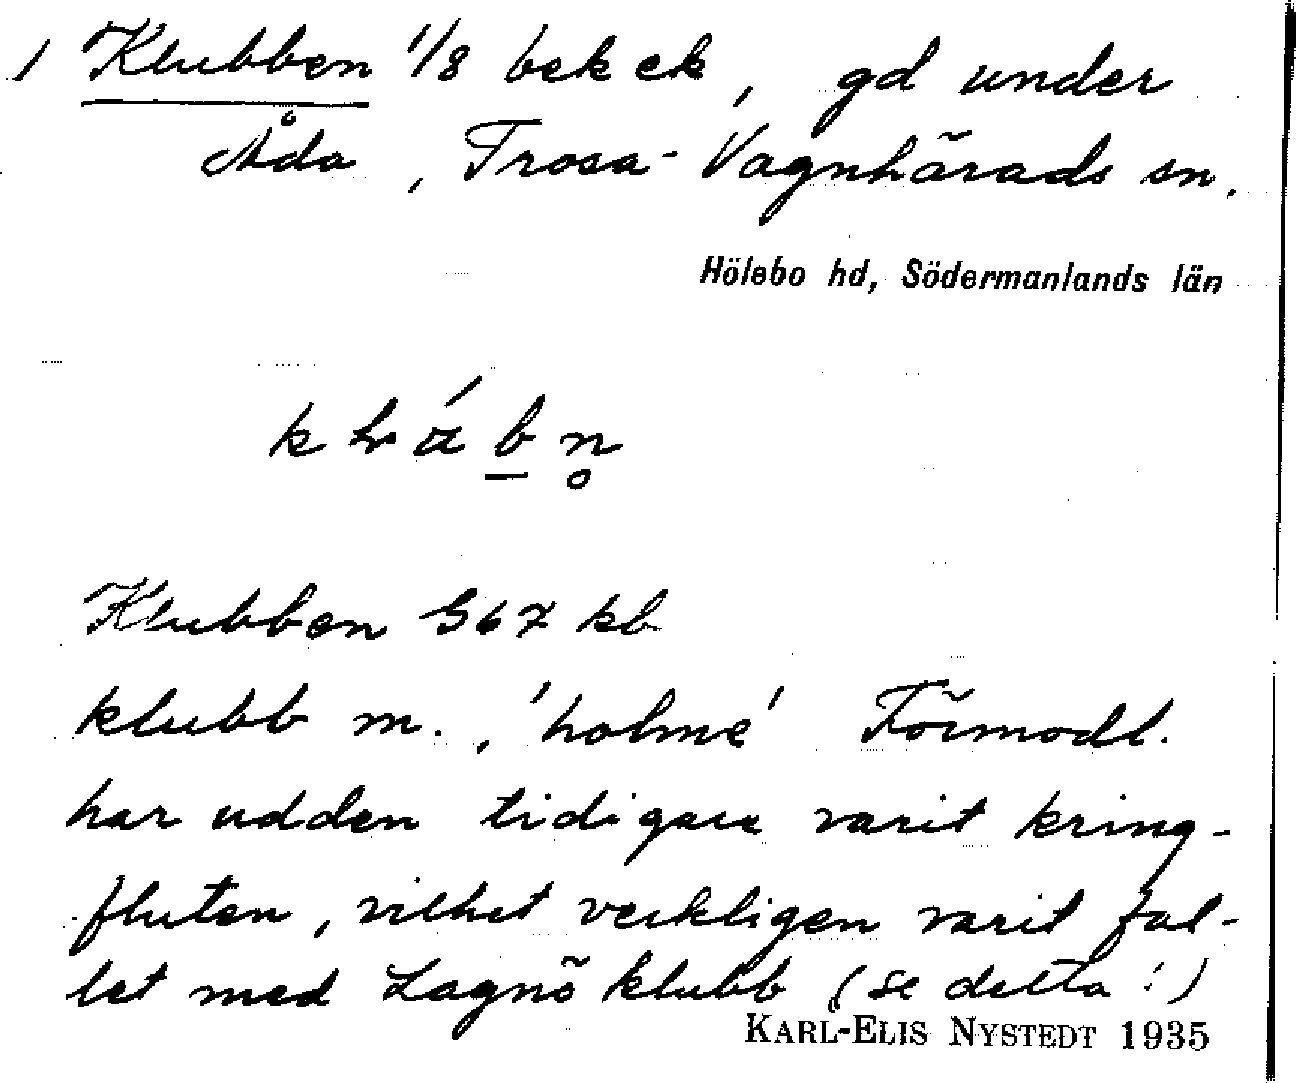 / Klubben 1/8 bek ek, gd under
Åda, Trosa-Vagnhärads sn.
Hölebo hd, Södermanlands län
Klubben 567 kb
klubb m., 'holme' Förmodl.
har udden tidigare varit kring-
fluten, vilket verkligen varit fal-
let med Lagnö klubb (se detta!)
KARL-ELIS NYSTEDT 1935